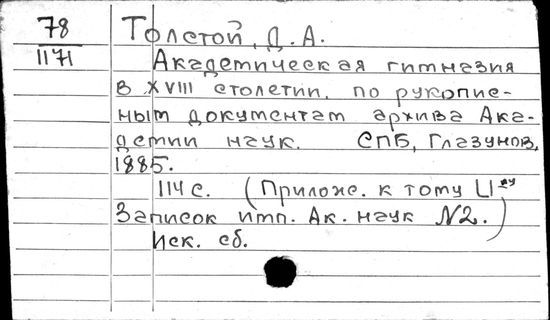 78
1171
Толстой, Д. А.
Академическая гимназия
в XVIII столетии, по рукопис-
ным документам архива Ака-
демии наук. СПБ, Глазунов,
1885.
114 с. (Прилож. к тому LI-му
Записок имп. Ак. наук N2.)
Иск. сб.